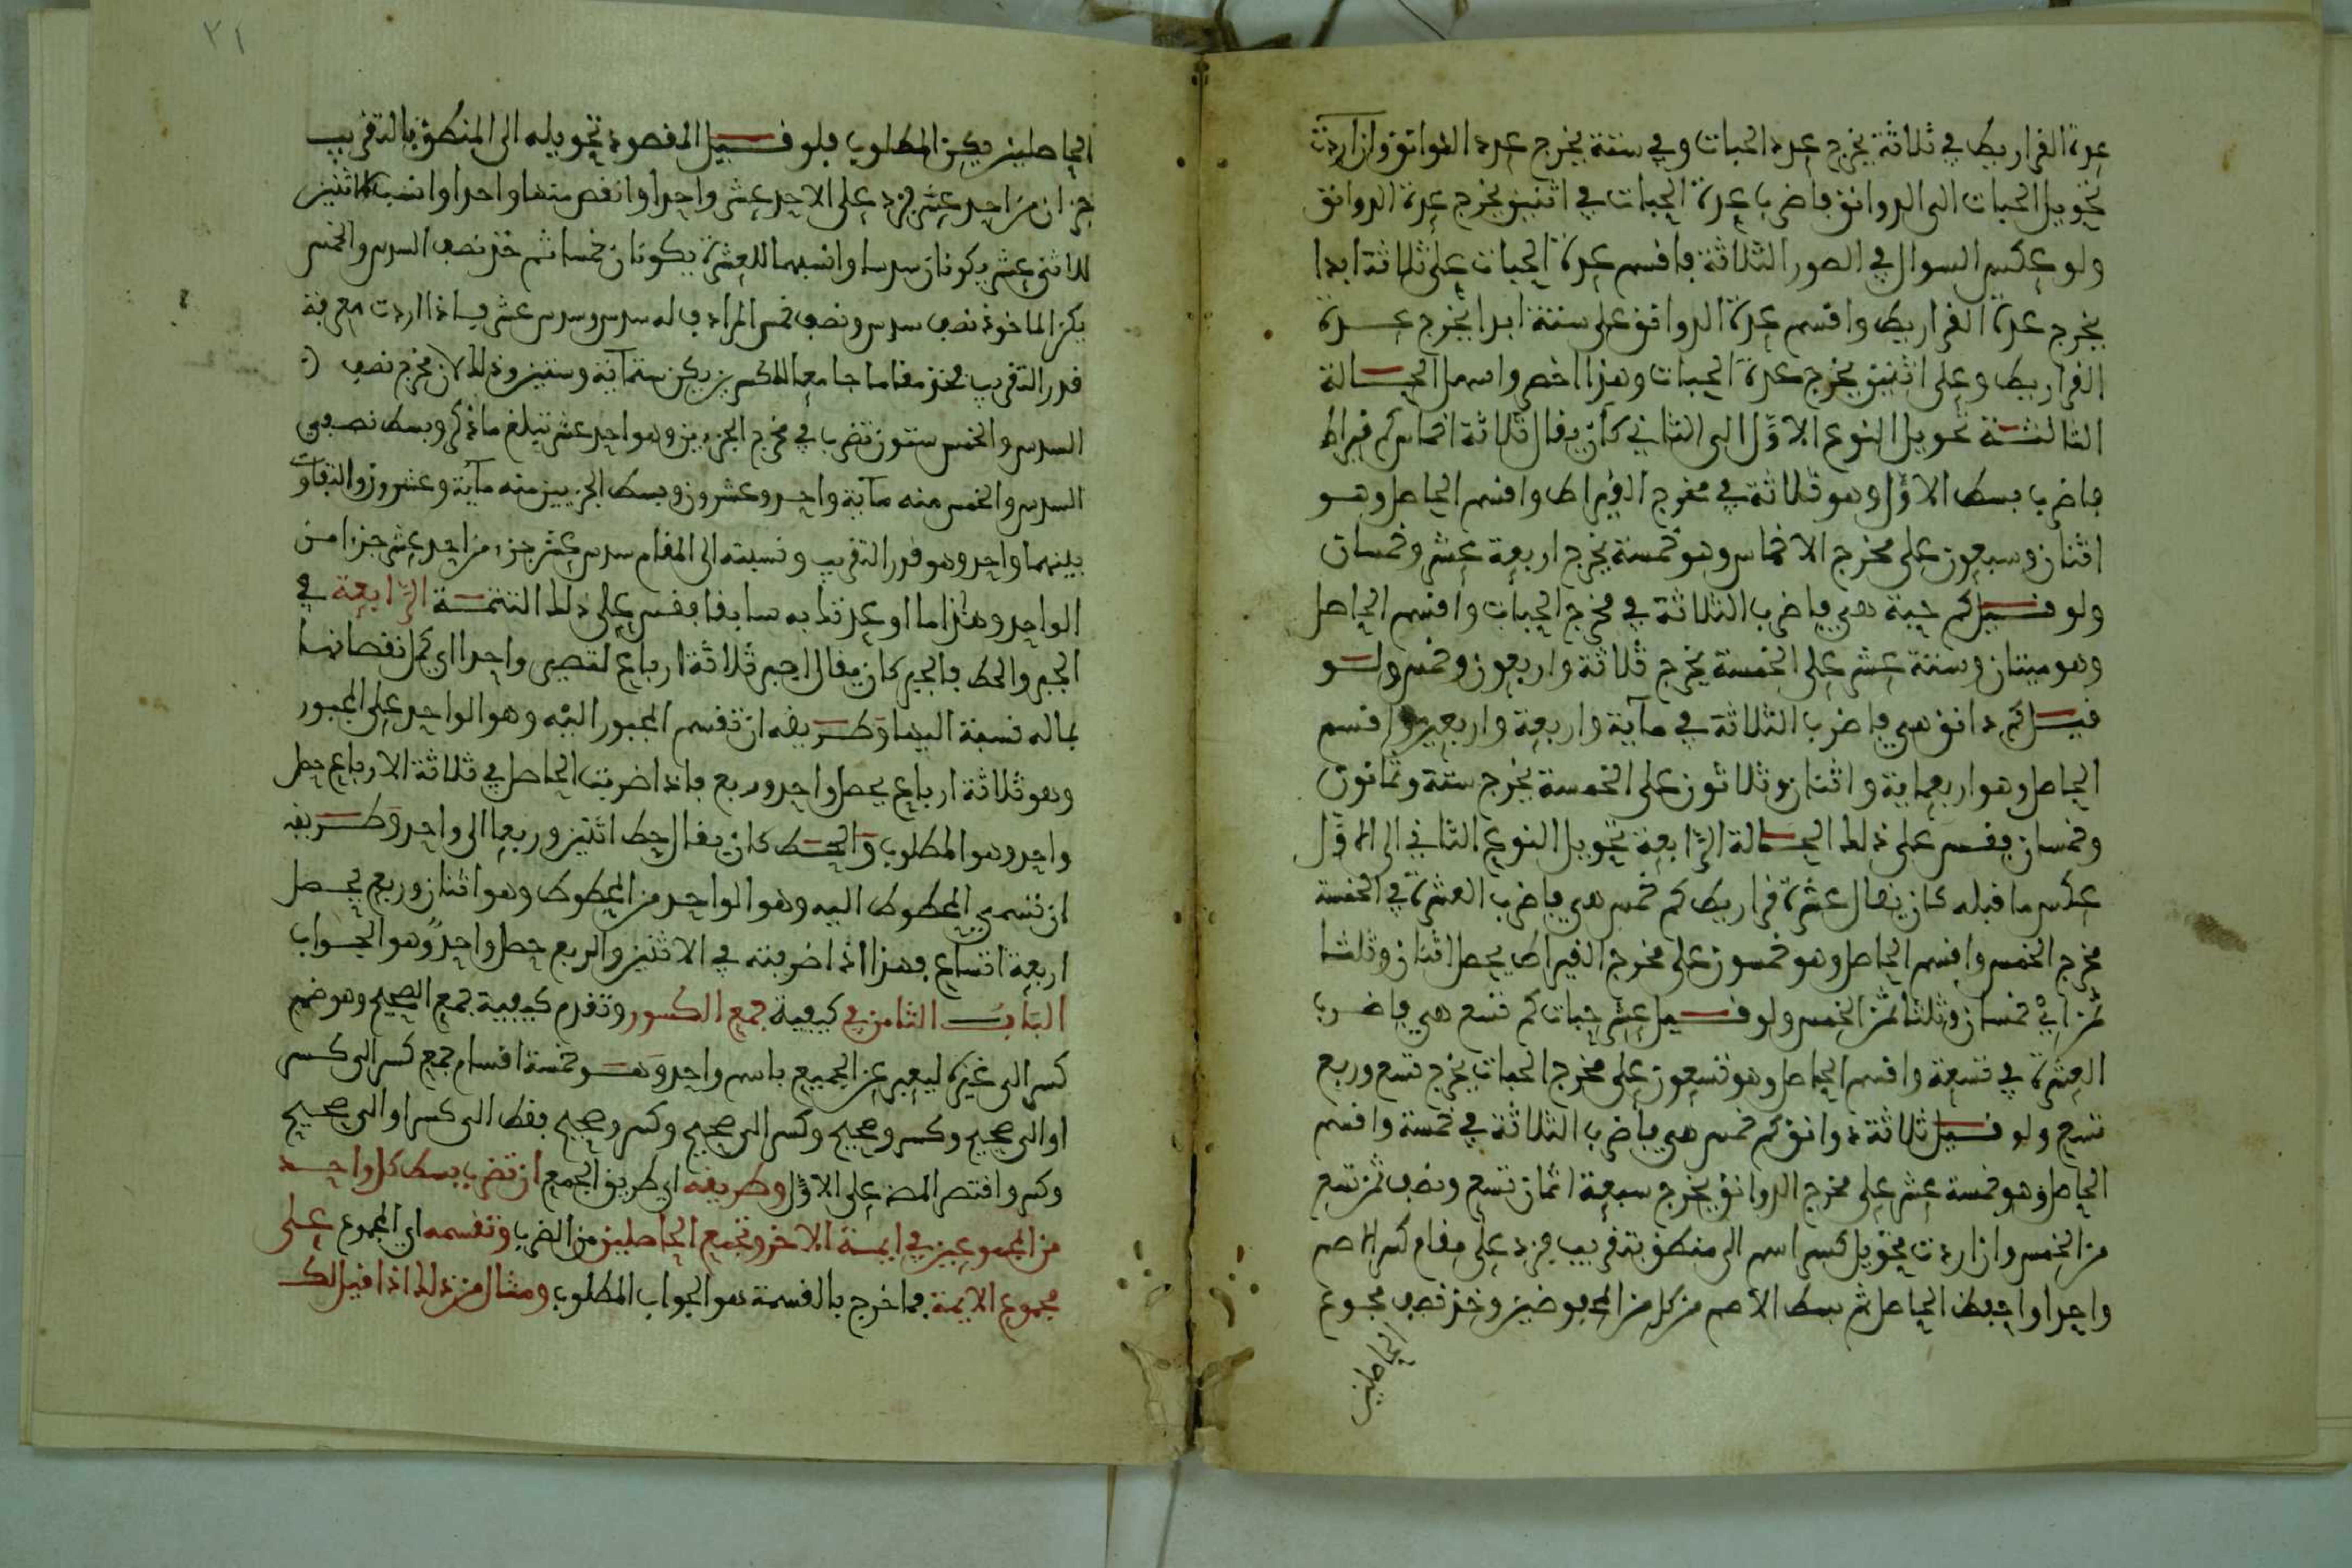 عدة القراريط في ثلاثة يخرج عدد الحبات وفي ستة يخرج عدد الدوانق وان اردت
تحويل الحبات الى الدوانق فاضرب عدة الحبات في اثنين يخرج عدة الدوانق
ولو عكس السوال في الصور الثلاثة فاقسم عدة الحبات على ثلاثة ابدا
يخرج عدة القراريط واقسم عدة الدوانق على ستة ابدا يخرج عدة
القراريط وعلى اثنين يخرج عدة الحبات وهذا اخصر واسهل الحالة
الثالثة تحويل النوع الاول الى الثاني كأن يقال ثلاثة اخماس كم قيراط
فاضرب بسط الاول وهو ثلاثة في مخرج القيراط واقسم الحاصل وهو
اثنان وسبعون على مخرج الاخماس وهو خمسة يخرج اربعة عشر وخمسان
ولو قيل كم حبة هي فاضرب الثلاثة في مخرج الحبات واقسم الحاصل
وهو ميتان وستة عشر على الخمسة يخرج ثلاثة واربعون وخمس ولو
قيل كم دانق هي فاضرب الثلاثة في ماية واربعة واربعين واقسم
الحاصل وهو اربعماية واثنان وثلاثون على الخمسة يخرج ستة وثمانون
وخمسان فقس على ذلك الحالة الرابعة تحويل النوع الثاني الى الاول
عكس ما قبله كان يقال عشرة قراريط كم خمس هي فاضرب العشرة في الخمسة
مخرج الخمس واقسم الحاصل وهو خمسون على مخرج القيراط يحصل اثنان وثلثا
ثمن اي خمسان وثلثا ثمن الخمس ولو قيل عشر حبات كم تسع هي فاضرب
العشرة في تسعة واقسم الحاصل وهو تسعون على مخرج الحبات يخرج تسع وربع
تسع ولو قيل ثلاثة دوانق كم خمس هي فاضرب الثلاثة في خمسة واقسم
الحاصل وهو خمسة عشر على مخرج الدوانق يخرج سبعة اثمان تسع ونصف ثمن تسع
من الخمس وان اردت تحويل كسر اصم الى منطق بتقريب فزد على مقام كسر الاصم
واحدا واحفظ الحاصل ثم بسط الاصم من كل من المحفوظين وخذ نصف مجموع
الحاصلين
٢١
الحاصلين يكن المطلوب فلو قيل المقصود تحويله الى المنطق بالتقريب
جزان من احد عشر فزد على الاحد عشر واحدا وانقص منها واحدا وانسب الاثنين
للاثني عشر يكونان سدسا وانسبهما للعشرة يكونان خمسا ثم خذ نصف السدس والخمس
يكن الماخوذ نصف سدس ونصف خمس المرادف له سدس وسدس عشر فاذا اردت معرفة
قدر التقريب فخذ مقاما جامعا للكسرين يكن ستماية وستين وذلك لان مخرج نصفي
السدس والخمس ستون تضرب في مخرج الجزءين وهو احد عشر تبلغ ما ذكر وبسط نصفي
السدس والخمس منه ماية واحد وعشرون وبسط الجزيين منه ماية وعشرون والتفاوت
بينهما واحد وهو قدر التقريب ونسبته الى المقام سدس عشر جزء من احد عشر جزا من
الواحد وهذا ما اوعدتك به سابقا فقس على ذلك التتمة الرابعة في
الجبر والحط فالجبر كان يقال اجبر ثلاثة ارباع لتصير واحدا اي كمل نقصانها
بماله نسبة اليها وطريقه ان تقسم المجبور اليه وهو الواحد على المجبور
وهو ثلاثة ارباع يحصل واحد وربع فاذا ضربت الحاصل في ثلاثة الارباع حصل
واحد وهو المطلوب والحط كان يقال حط اثنين وربعا الى واحد وطريقه
ان تسمي المحطوط اليه وهو الواحد من المحطوط وهو اثنان وربع يحصل
اربعة اتساع فهذا اذا ضربته في الاثنين والربع حصل واحد وهو الجواب
الباب الثامن في كيفية جمع الكسور وتقدم كيفية جمع الصحيح وهو ضم
كسر الى غيره ليعبر عن الجميع باسم واحد وهو خمسة اقسام جمع كسر الى كسر
او الى صحيح وكسر وصحيح وكسر الى صحيح وكسر وصحيح فقط الى كسر او الى صحيح
وكسر واقتصر المص على الاول وطريقه اي طريق الجمع ان تضرب بسط كل واحد
من المجموعين في ايمة الاخر وتجمع الحاصلين من الضرب وتقسمه اي المجموع على
مجموع الايمة فما خرج بالقسمة هو الجواب المطلوب ومثال من ذلك اذا قيل لك